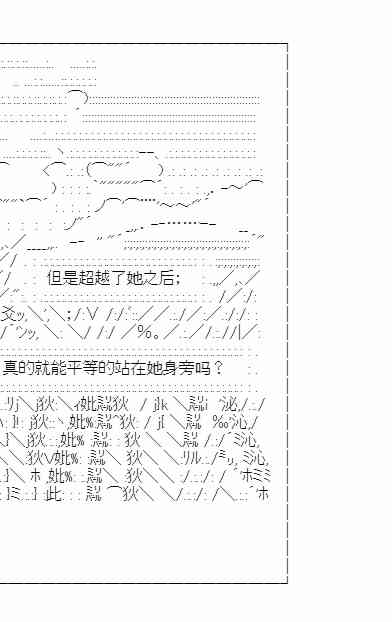 但是超越了她之后；
真的就能平等的站在她身旁吗？